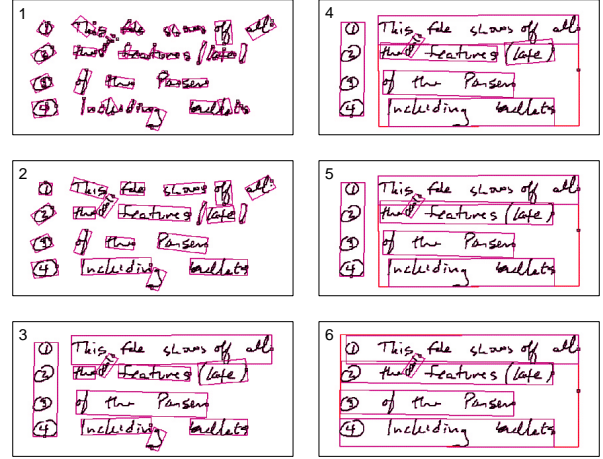 1
① This file shows off all
② the features (late)
③ of the Parser
④ Including bullets
2
① This file shows off all
② the features (late)
③ of the Parser
④ Including bullets
3
① This file shows off all
② the features (late)
③ of the Parser
④ Including bullets
4
① This file shows off all
② the features (late)
③ of the Parser
④ Including bullets
5
① This file shows off all
② the features (late)
③ of the Parser
④ Including bullets
6
① This file shows off all
② the features (late)
③ of the Parser
④ Including bullets